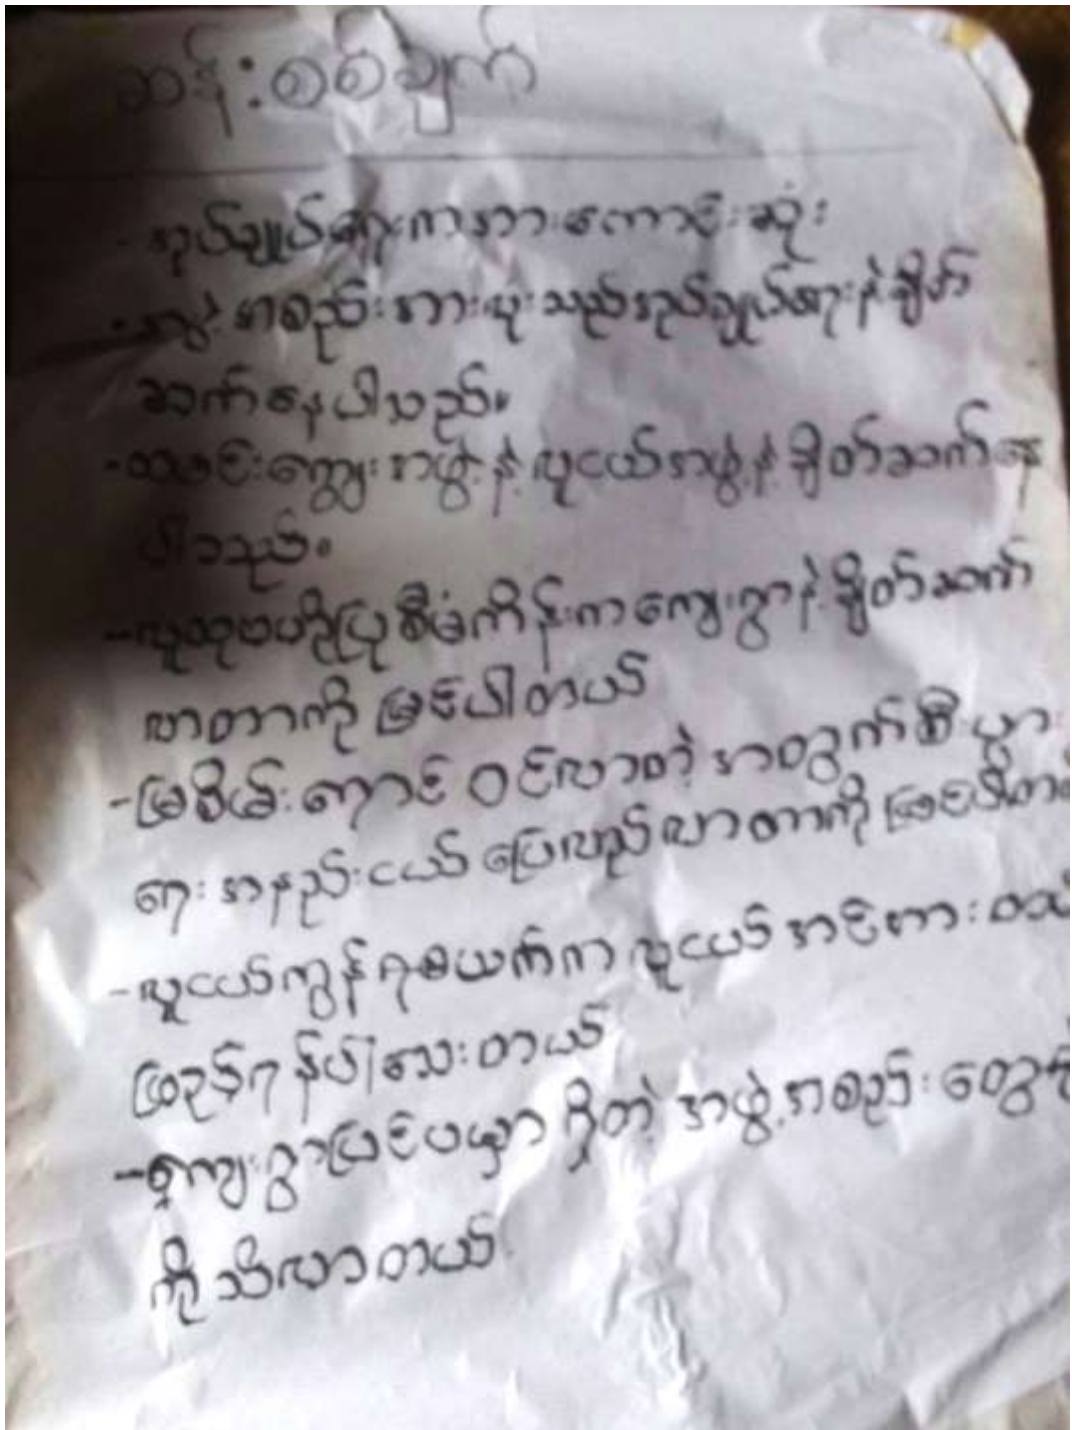 ဆန်းစစ်ချက်
- အုပ်ချုပ်ရေးကအားကောင်းဆုံး
- အဖွဲ့အစည်းအားလုံးသည်အုပ်ချုပ်ရေးနဲ့ချိတ်
ဆက်နေပါသည်။
- ထမင်းကျွေးအဖွဲ့နဲ့လူငယ်အဖွဲ့နဲ့ချိတ်ဆက်နေ
ပါသည်။
- လူထုဗဟိုပြုစီမံကိန်းကကျေးရွာနဲ့ချိတ်ဆက်
လာတာကိုမြင်ပါတယ်
- မြစိမ်းရောင်ဝင်လာတဲ့အတွက်စီးပွား
ရေးအနည်းငယ်ပြေလည်လာတာကိုမြင်ပါတယ်
- လူငယ်ကွန်ရစ်ယက်ကလူငယ်အင်အား
ဖြည့်ရန်လိုသေးတယ်
- ကျေးရွာပြင်ပမှာရှိတဲ့အဖွဲ့အစည်းတွေ
ကိုသိလာတယ်